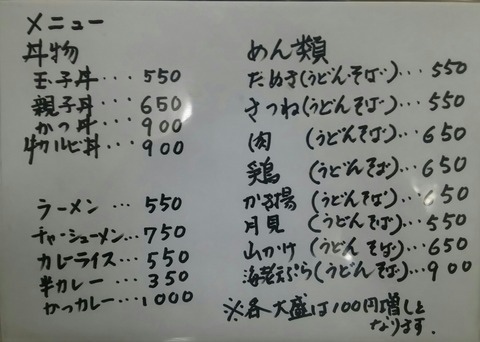 メニュー
丼物
玉子丼・・・550
親子丼・・・650
かつ丼・・・900
牛カルビ丼・・・900
ラーメン・・・550
チャーシューメン・・・750
カレーライス・・・550
半カレー・・・350
かつカレー・・・1000
めん類
たぬき(うどん・そば)・・・550
きつね(うどん・そば)・・・550
肉(うどん・そば)・・・650
鶏(うどん・そば)・・・650
かき揚(うどん・そば)・・・650
月見(うどん・そば)・・・550
山かけ(うどん そば)・・・650
海老天ぷら(うどん・そば)・・・900
※各大盛は100円増しと
なります.